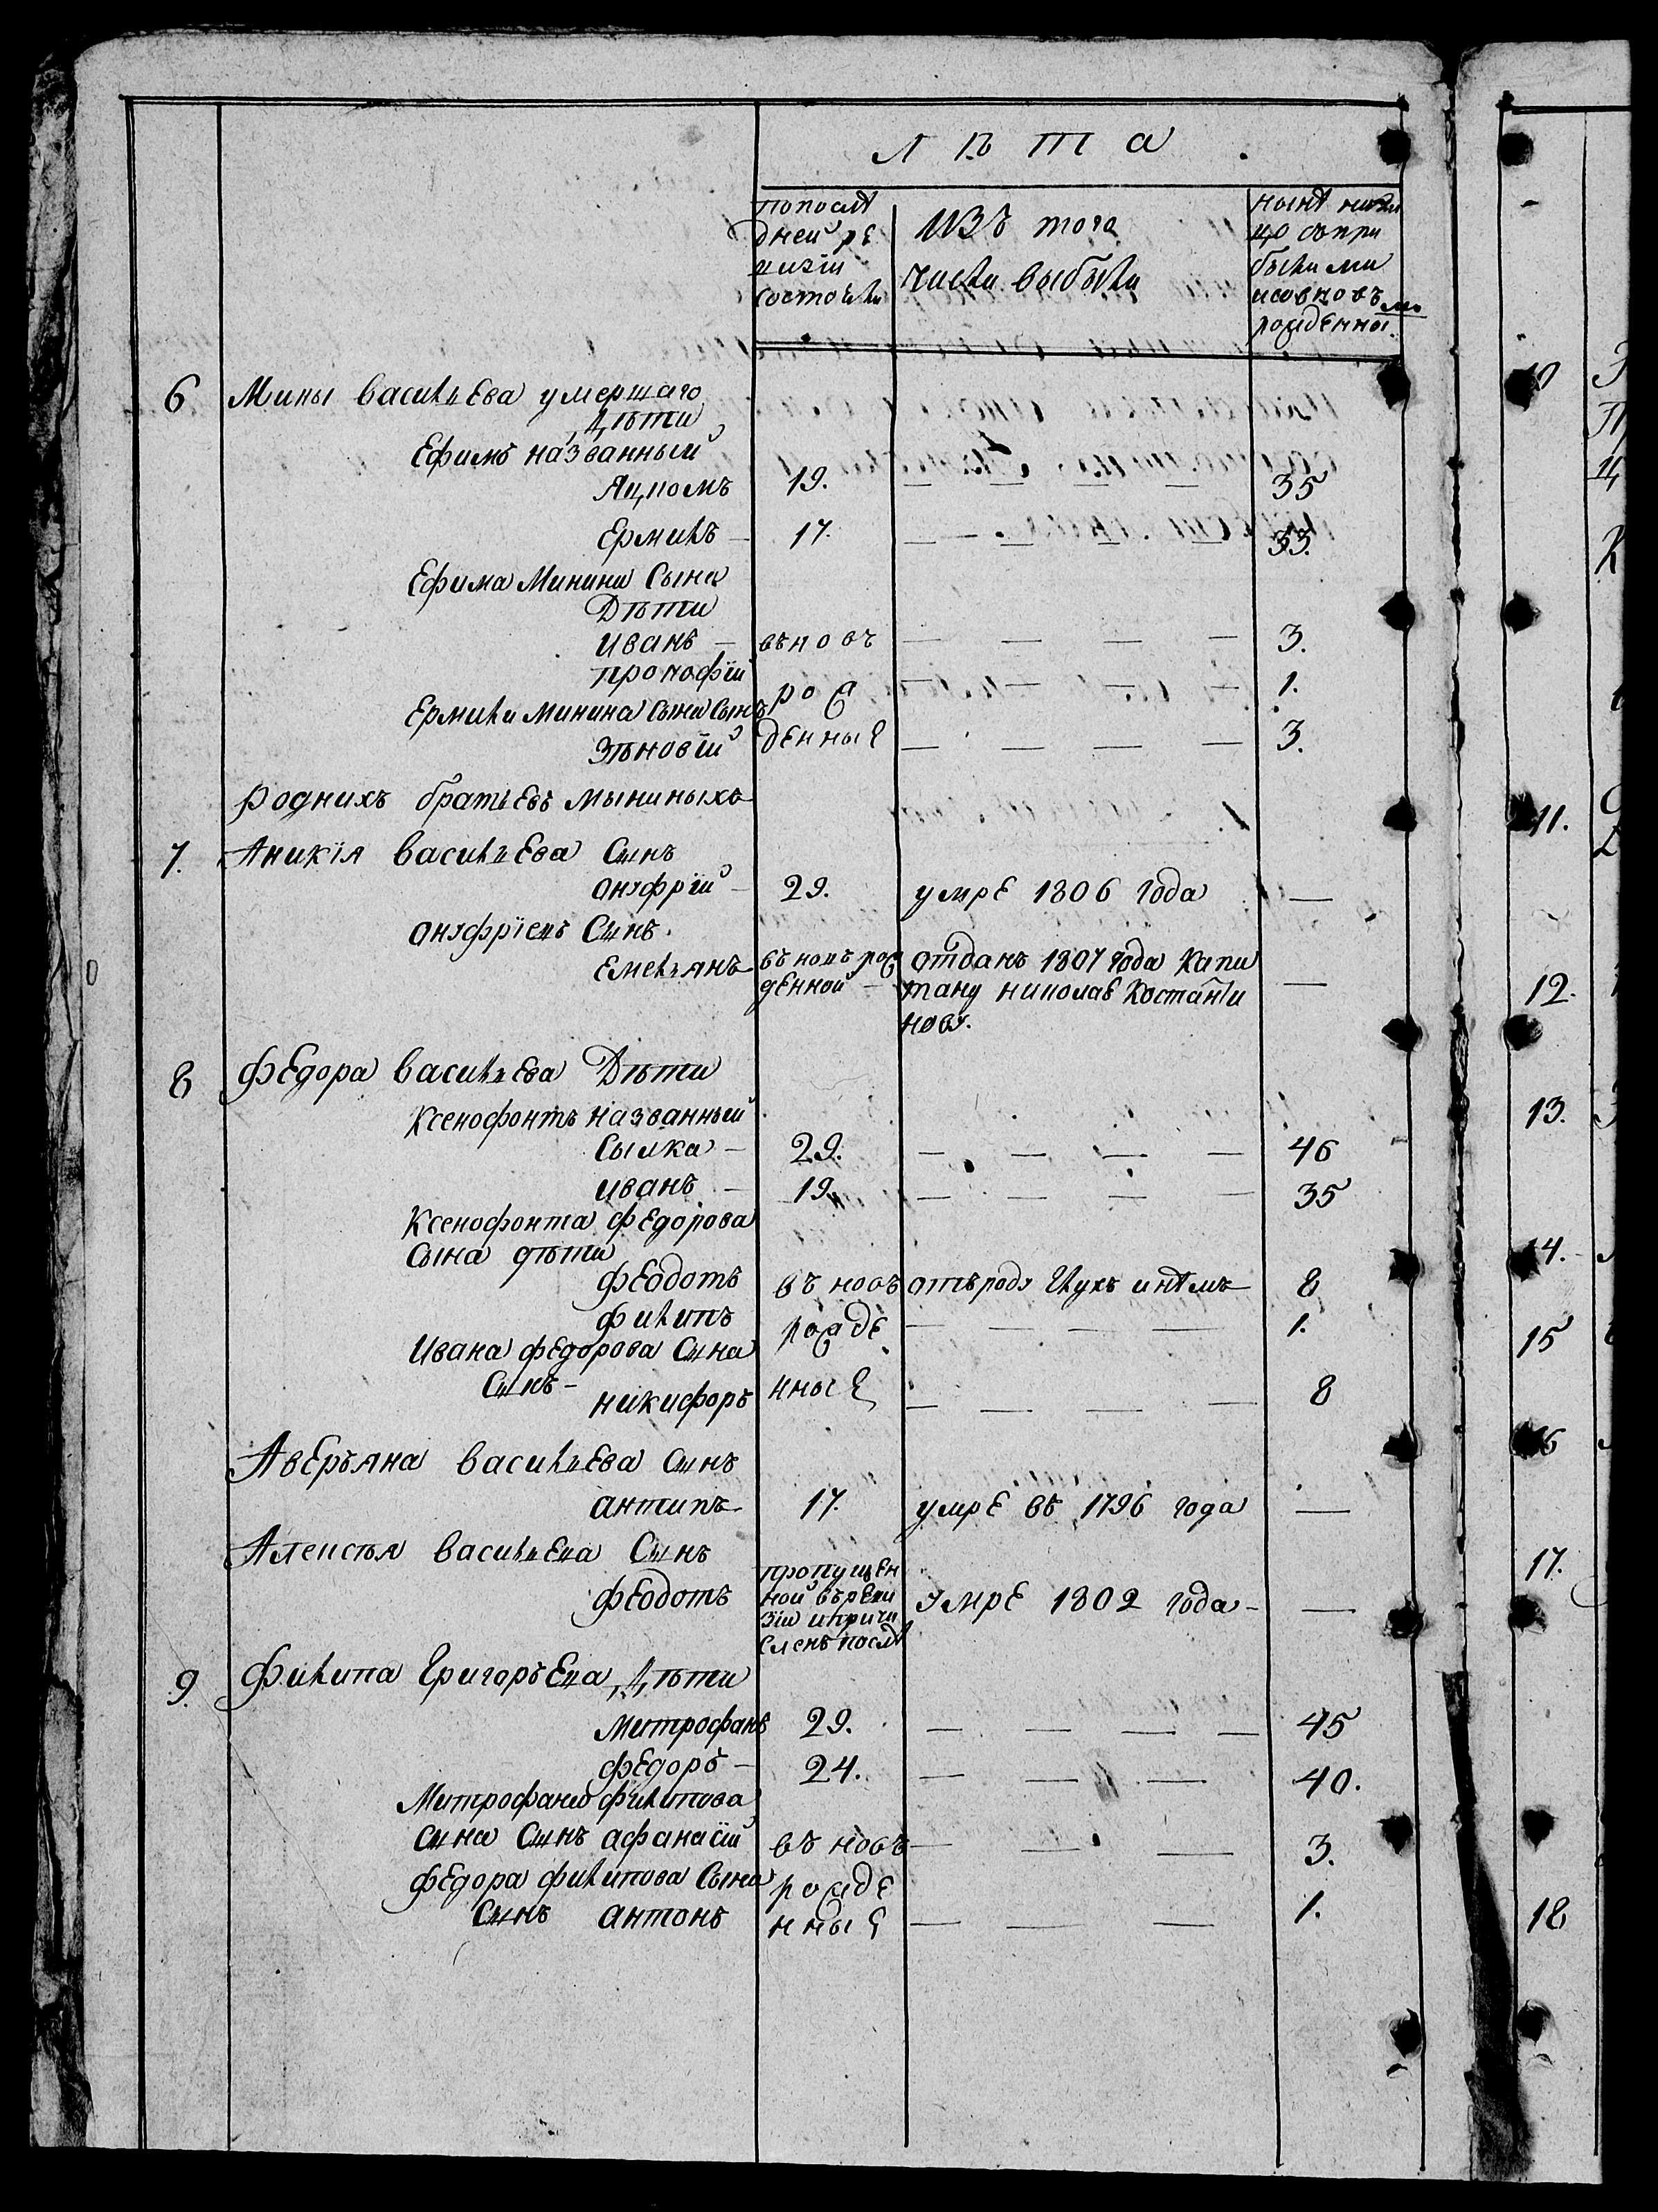 лѣта
попослѣ
дней ре
визiи
состояли
изъ того
числа выбыли
нынѣ нали
цо съпри
былыми
исъвновъ
рожденны
ми
6 Мины васильева умершаго
дѣти
Ефимъ названный
19. 35
Ермилъ 17. 33.
Ефима Минина Сына
Дѣти
иванъ вѣновъ 3.
прокофiй рож 1.
Ермила минина сына сынъ
зѣновiй денные 3.
родныхъ братьевъ мыниныхъ
7. Аникiя васильева Сынъ
онуфрiй 29. умре 1806 года
онуфрiевъ Сынъ
емельянъ въновъ рож
денной
отданъ 1807 года капи
тану николаю костанти
нову.
8 федора васильева Дѣти
Ксенофонтъ названный
Сылка 29. 46
иванъ 19. 35
Ксенофонта федорова
сына дѣти
феодотъ въ новъ отъроду глухъ инѣмъ 8
филипъ рожде 1.
Ивана федорова Сына
Сынъ
никифоръ нные 8
Аверъяна васильева сынъ
антипъ 17. умре въ 1796 года
Алексѣя васильева Сынъ
феодотъ пропущен
ной въреви
зiи ипричи
сленъ послѣ
умре 1802 года
9. филипа григорьева дѣти
митрофанъ 29. 45
федоръ 24. 40.
Митрофана филипова
сына Сынъ афанасiй въ новъ 3.
федора филипова Сына рожде
Сынъ антонъ нные 1.
10
11.
12.
13.
14.
15
16
17.
18